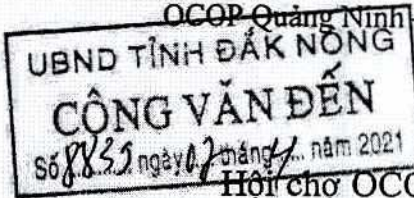 OCOP Quảng Ninh
UBND TỈNH ĐẮK NÔNG
CÔNG VĂN ĐẾN
Số 8835 ngày 07 tháng 4 năm 2021
Hội chợ OCO